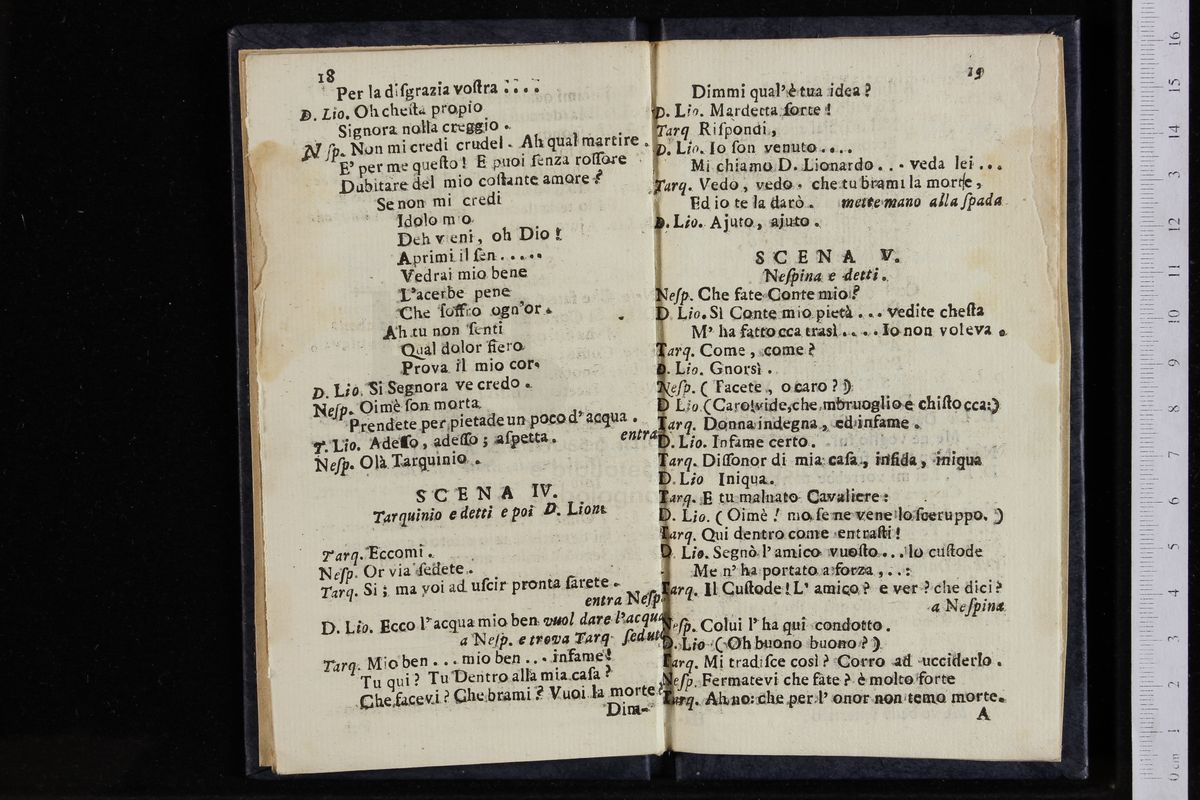 18
Per la disgrazia vostra ....
D. Lio. Oh chesta propio
Signora nolla creggio .
Nsp. Non mi credi crudel . Ah qual martire .
E' per me questo! E puoi senza rossore
Dubitare del mio costante amore ?
Se non mi credi
Idolo m o
Deh v eni , oh Dio !
Aprimi il sen .....
Vedrai mio bene
L'acerbe pene
Che soffro ogn'or .
Ah tu non senti
Qual dolor fiero
Prova il mio cor.
D. Lio. Si Segnora ve credo .
Nesp. Oimè son morta
Prendete per pietade un poco d' acqua .
T. Lio. Adesso , adesso ; aspetta . entra
Nesp. Olà Tarquinio .
SCENA IV.
Tarquinio e detti e poi D. Lion.
Tarq. Eccomi .
Nesp. Or via sedete .
Tarq. Si ; ma voi ad uscir pronta sarete .
entra Nesp.
D. Lio. Ecco l'acqua mio ben vuol dare l'acqua
a Nesp. e trova Tarq. seduto
Tarq. Mio ben ... mio ben ... infame!
Tu qui ? Tu Dentro alla mia casa ?
Che facevi ? Che brami ? Vuoi la morte?
Dim-
19
Dimmi qual' è tua idea ?
D. Lio. Mardetta sorte !
Tarq Rispondi ,
D. Lio. Io son venuto ....
Mi chiamo D. Lionardo ... veda lei ...
Tarq. Vedo , vedo . che tu brami la morte ,
Ed io te la darò . mette mano alla spada
D. Lio. Ajuto , ajuto .
SCENA V.
Nespina e detti .
Nesp. Che fate Conte mio ?
D. Lio. Sì Conte mio pietà ... vedite chesta
M' ha fatto cca trasì .... Io non voleva .
Tarq. Come , come ?
D. Lio. Gnorsì .
Nesp. ( Facete , o caro ? )
D Lio. (Caro! vide, che mbruoglio e chisto cca:)
Tarq. Donna indegna , ed infame .
D. Lio. Infame certo .
Tarq. Dissonor di mia casa , infida , iniqua
D. Lio Iniqua .
Tarq. E tu malnato Cavaliere :
D. Lio. ( Oimè ! mo se ne vene lo sceruppo. )
Tarq. Qui dentro come entrasti !
D. Lio. Segnò l' amico vuosto ... lo custode
Me n' ha portato a forza , ..:
Tarq. Il Custode ! L' amico ? e ver ? che dici ?
a Nespina
Nesp. Colui l' ha qui condotto .
D. Lio ( Oh buono buono ? )
Tarq. Mi tradisce così ? Corro ad ucciderlo .
Nesp. Fermatevi che fate ? è molto forte
Tarq. Ah no: che per l' onor non temo morte.
A